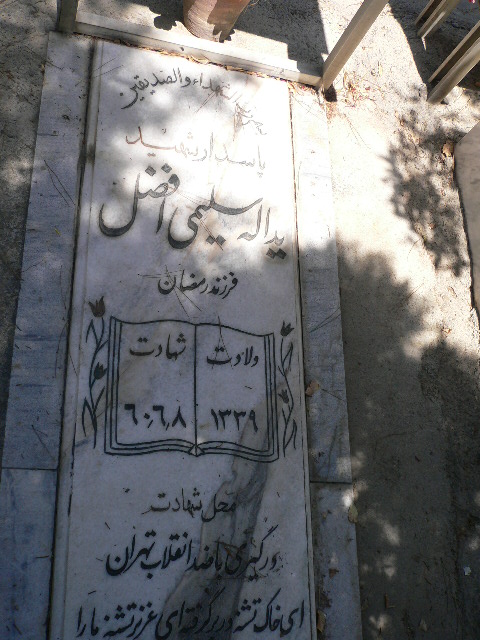 بسم رب الشهداء والصدیقین
پاسدار شهید
یداله سلیمی افضل
فرزند رمضان
ولادت
۱۳۳۹
شهادت
۶۰٫۶٫۸
محل شهادت
درگیری با ضد انقلاب تهران
ای خاک تشنه در بر گرفته ای عزیز تشنه ما را